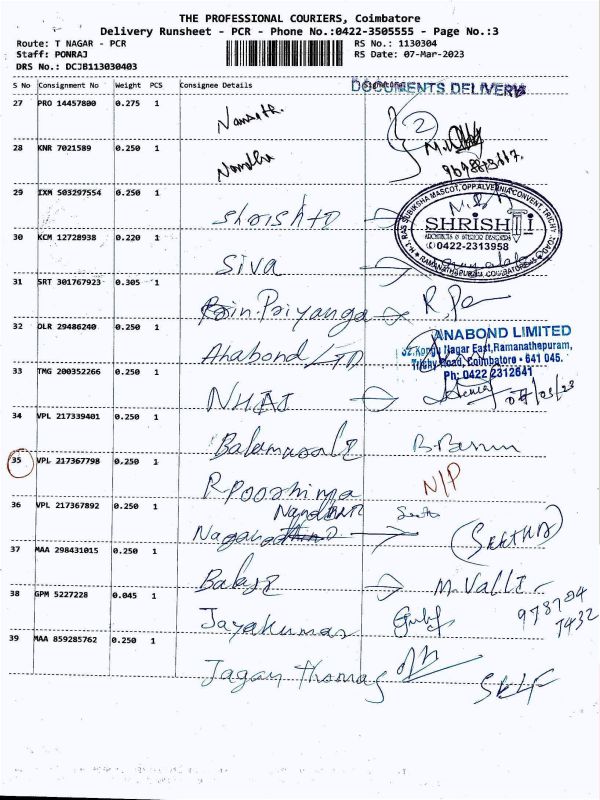 THE PROFESSIONAL COURIERS, Coimbatore
Delivery Runsheet - PCR - Phone No.:0422-3505555 - Page No.:3
Route: T NAGAR - PCR
RS No.: 1130304
Staff: PONRAJ
RS Date: 07-Mar-2023
DRS No.: DCJB113030403
S No Consignment No Weight PCS Consignee Details
DOCUMENTS DELIVERY
27 PRO 14457800 0.275 1
2
28 KNR 7021589 0.250 1
Nandha
29 IXM 503297554 0.250 1
Shrisht
SHRISHTI
ARCHITECTS & INTERIOR DESIGNERS
0422-2313958
RAMANATHAPURAM, COIMBATORE
30 KCM 12728938 0.220 1
Siva
31 SRT 301767923 0.305 1
Priyanga
32 OLR 29486240 0.250 1
Anabond LTD
ANABOND LIMITED
52, Kongu Nagar East, Ramanathapuram,
Trichy Road, Coimbatore - 641 045.
Ph: 0422 2312641
33 TMG 200352266 0.250 1
NHAI
07/03/23
34 VPL 217339401 0.250 1
35 VPL 217367798 0.250 1
R Poornima
N/P
36 VPL 217367892 0.250 1
(SEETHA)
37 MAA 298431015 0.250 1
Balaji
M. Valli
38 GPM 5227228 0.045 1
Jayakumar
978704
7432
39 MAA 859285762 0.250 1
Jagan Thomas
SELF